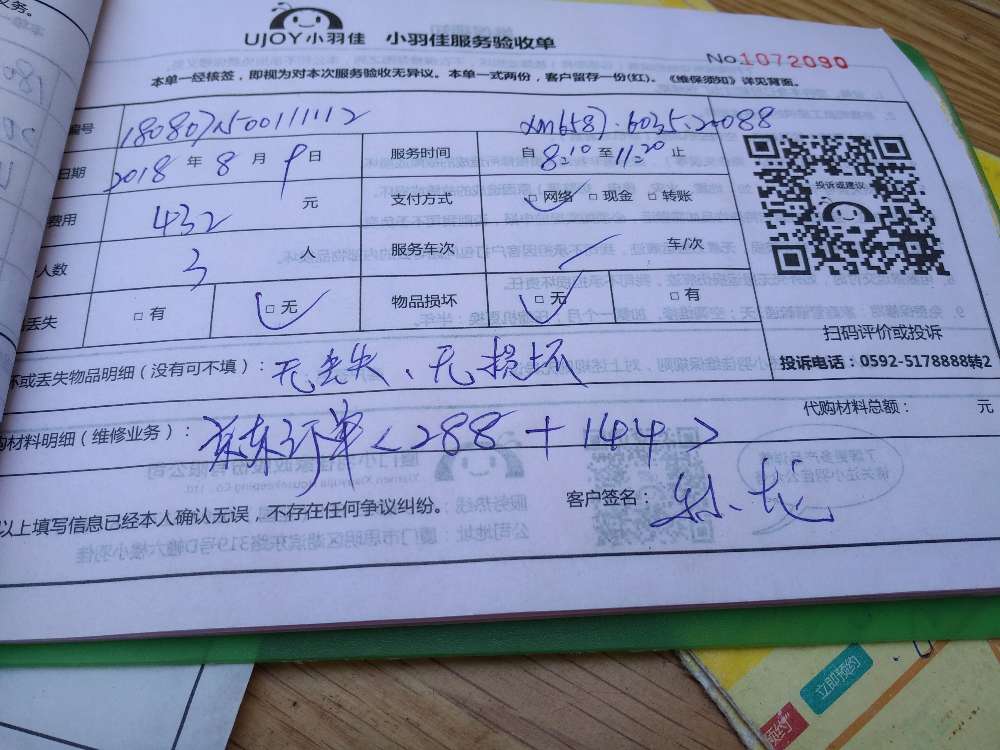 UJOY小羽佳 小羽佳服务验收单
No.1072090
本单一经核签，即视为对本次服务验收无异议。本单一式两份，客户留存一份(红)。《维保须知》详见背面。
编号 180807150011112
日期 2018年8月9日 服务时间 自8:10至11:20止
费用 432 元 支付方式 □网络 □现金 □转账
人数 3 人 服务车次 车/次
丢失 □有 □无 物品损坏 □无 □有
投诉或建议
扫码评价或投诉
投诉电话：0592-5178888转2
坏或丢失物品明细（没有可不填）：无丢失、无损坏
代购材料总额： 元
购材料明细（维修业务）：京东订单<288+144>
以上填写信息已经本人确认无误，不存在任何争议纠纷。 客户签名：
立即预约